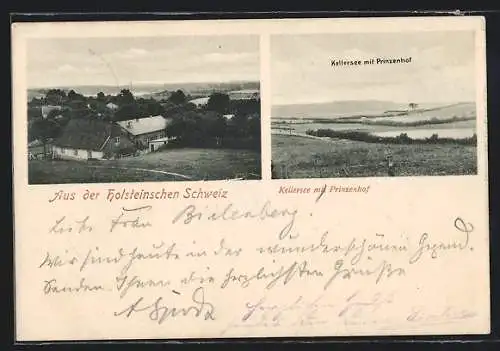 Kellersee mit Prinzenhof
Aus der Holsteinschen Schweiz
Kellersee mit Prinzenhof
Liebe Frau Bielenberg.
Wir sind heute in der wunderschönen Gegend.
Senden Ihnen die herzlichsten Grüße
Herzlichen Gruß